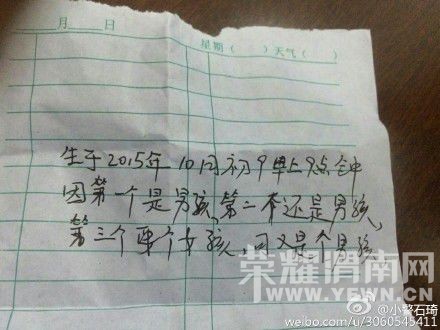 月 日 星期( )天气( )
生于2015年10月初9早上9点钟
因第一个是男孩,第二个还是男孩,
第三个要个女孩,可又是个男孩
荣耀渭南网
WWW.YEWN.CN
@小警石琦
weibo.com/u/3060545411